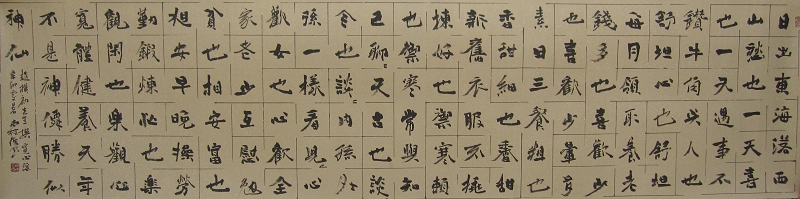 日出東海落西
山愁也一天喜
也一天遇事不
鑽牛角尖人也
舒坦心也舒坦
每月領取養老
錢多也喜歡少
也喜歡少葷多
素日三餐粗也
香甜細也香甜
新舊衣服不挑
揀好也禦寒賴
也禦寒常與知
己聊〻天古也談
〻今也談〻内孫外
孫一樣看兒也心
歡女也心歡全
家老少互慰勉
貧也相安富也
相安早晚操勞
勤鍛煉忙也樂
觀閑也樂觀心
寬體健養天年
不是神僊勝似
神仙
趙樸初先生撰寬心謠